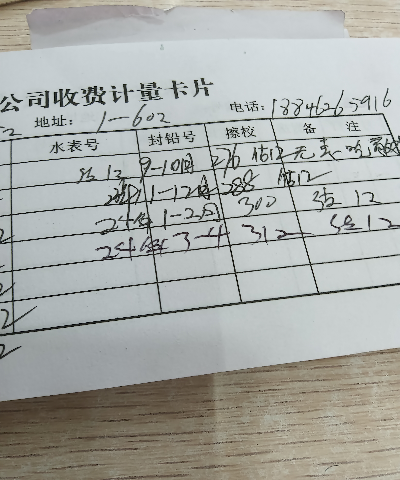 公司收费计量卡片
地址: 1-602 电话: 18846265916
水表号 封铅号 擦校 备 注
估12 9-10月 276 估12 无表
11-12月 288 估12
24年 1-2月 300 估12
24年 3-4 312 估12